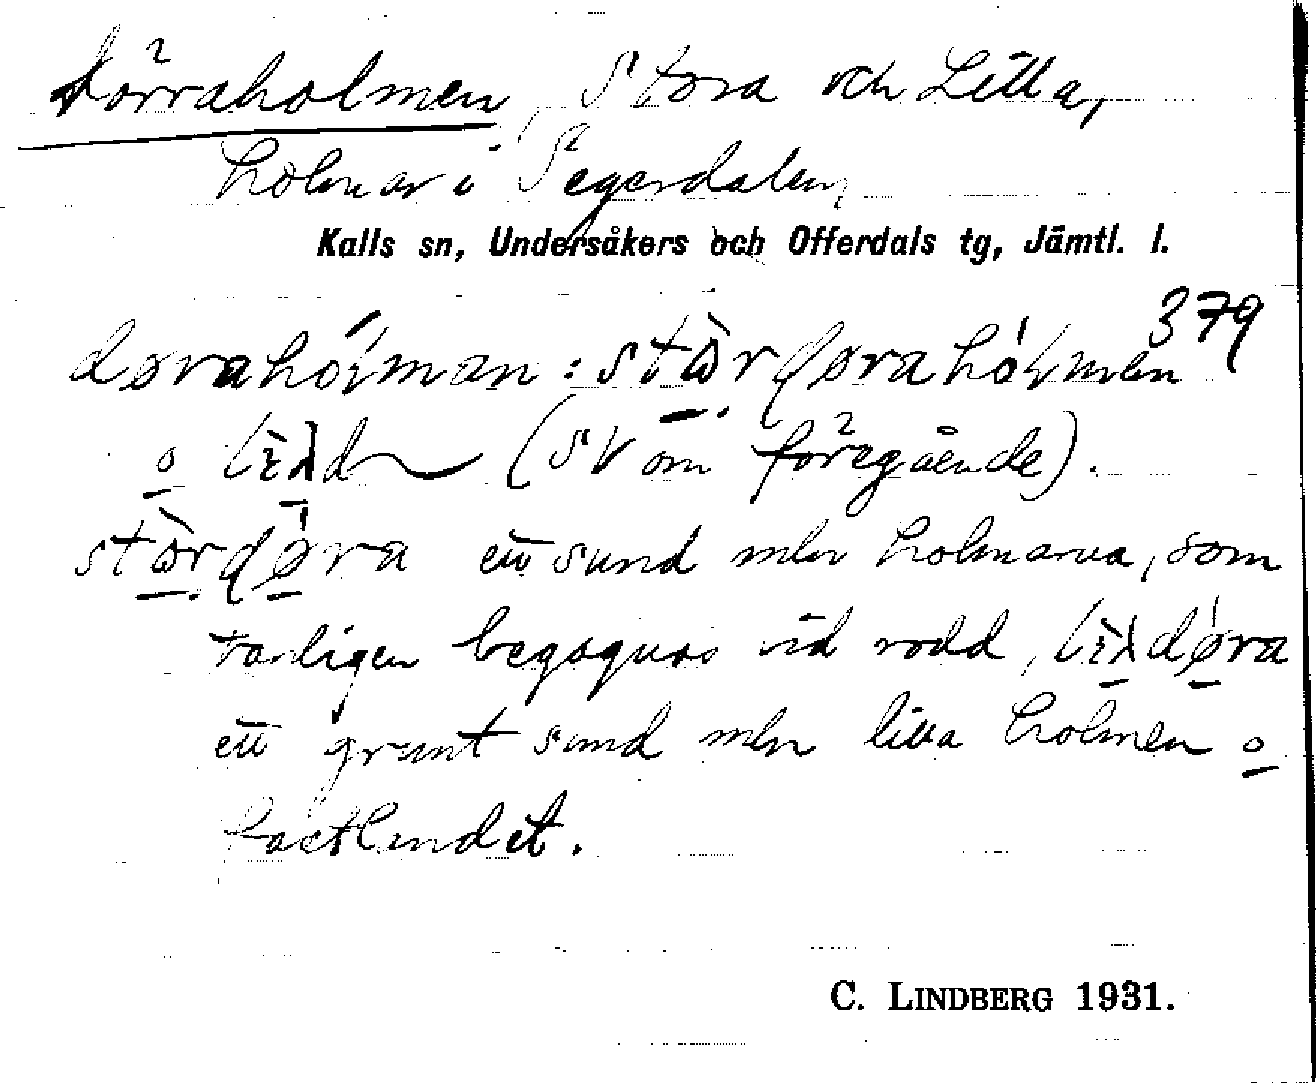 Dörraholmen, Stora och Lilla,
holmar i Segerdalen,
Kalls sn, Undersåkers och Offerdals tg, Jämtl. l.
379
døraholman : stórdøraholmen
o (SV om föregående).
stórdøra ett sund mln holmarna, som
vanligen begagnas vid rodd,
ett grunt sund mln lilla holmen o
fastlandet.
C. LINDBERG 1931.